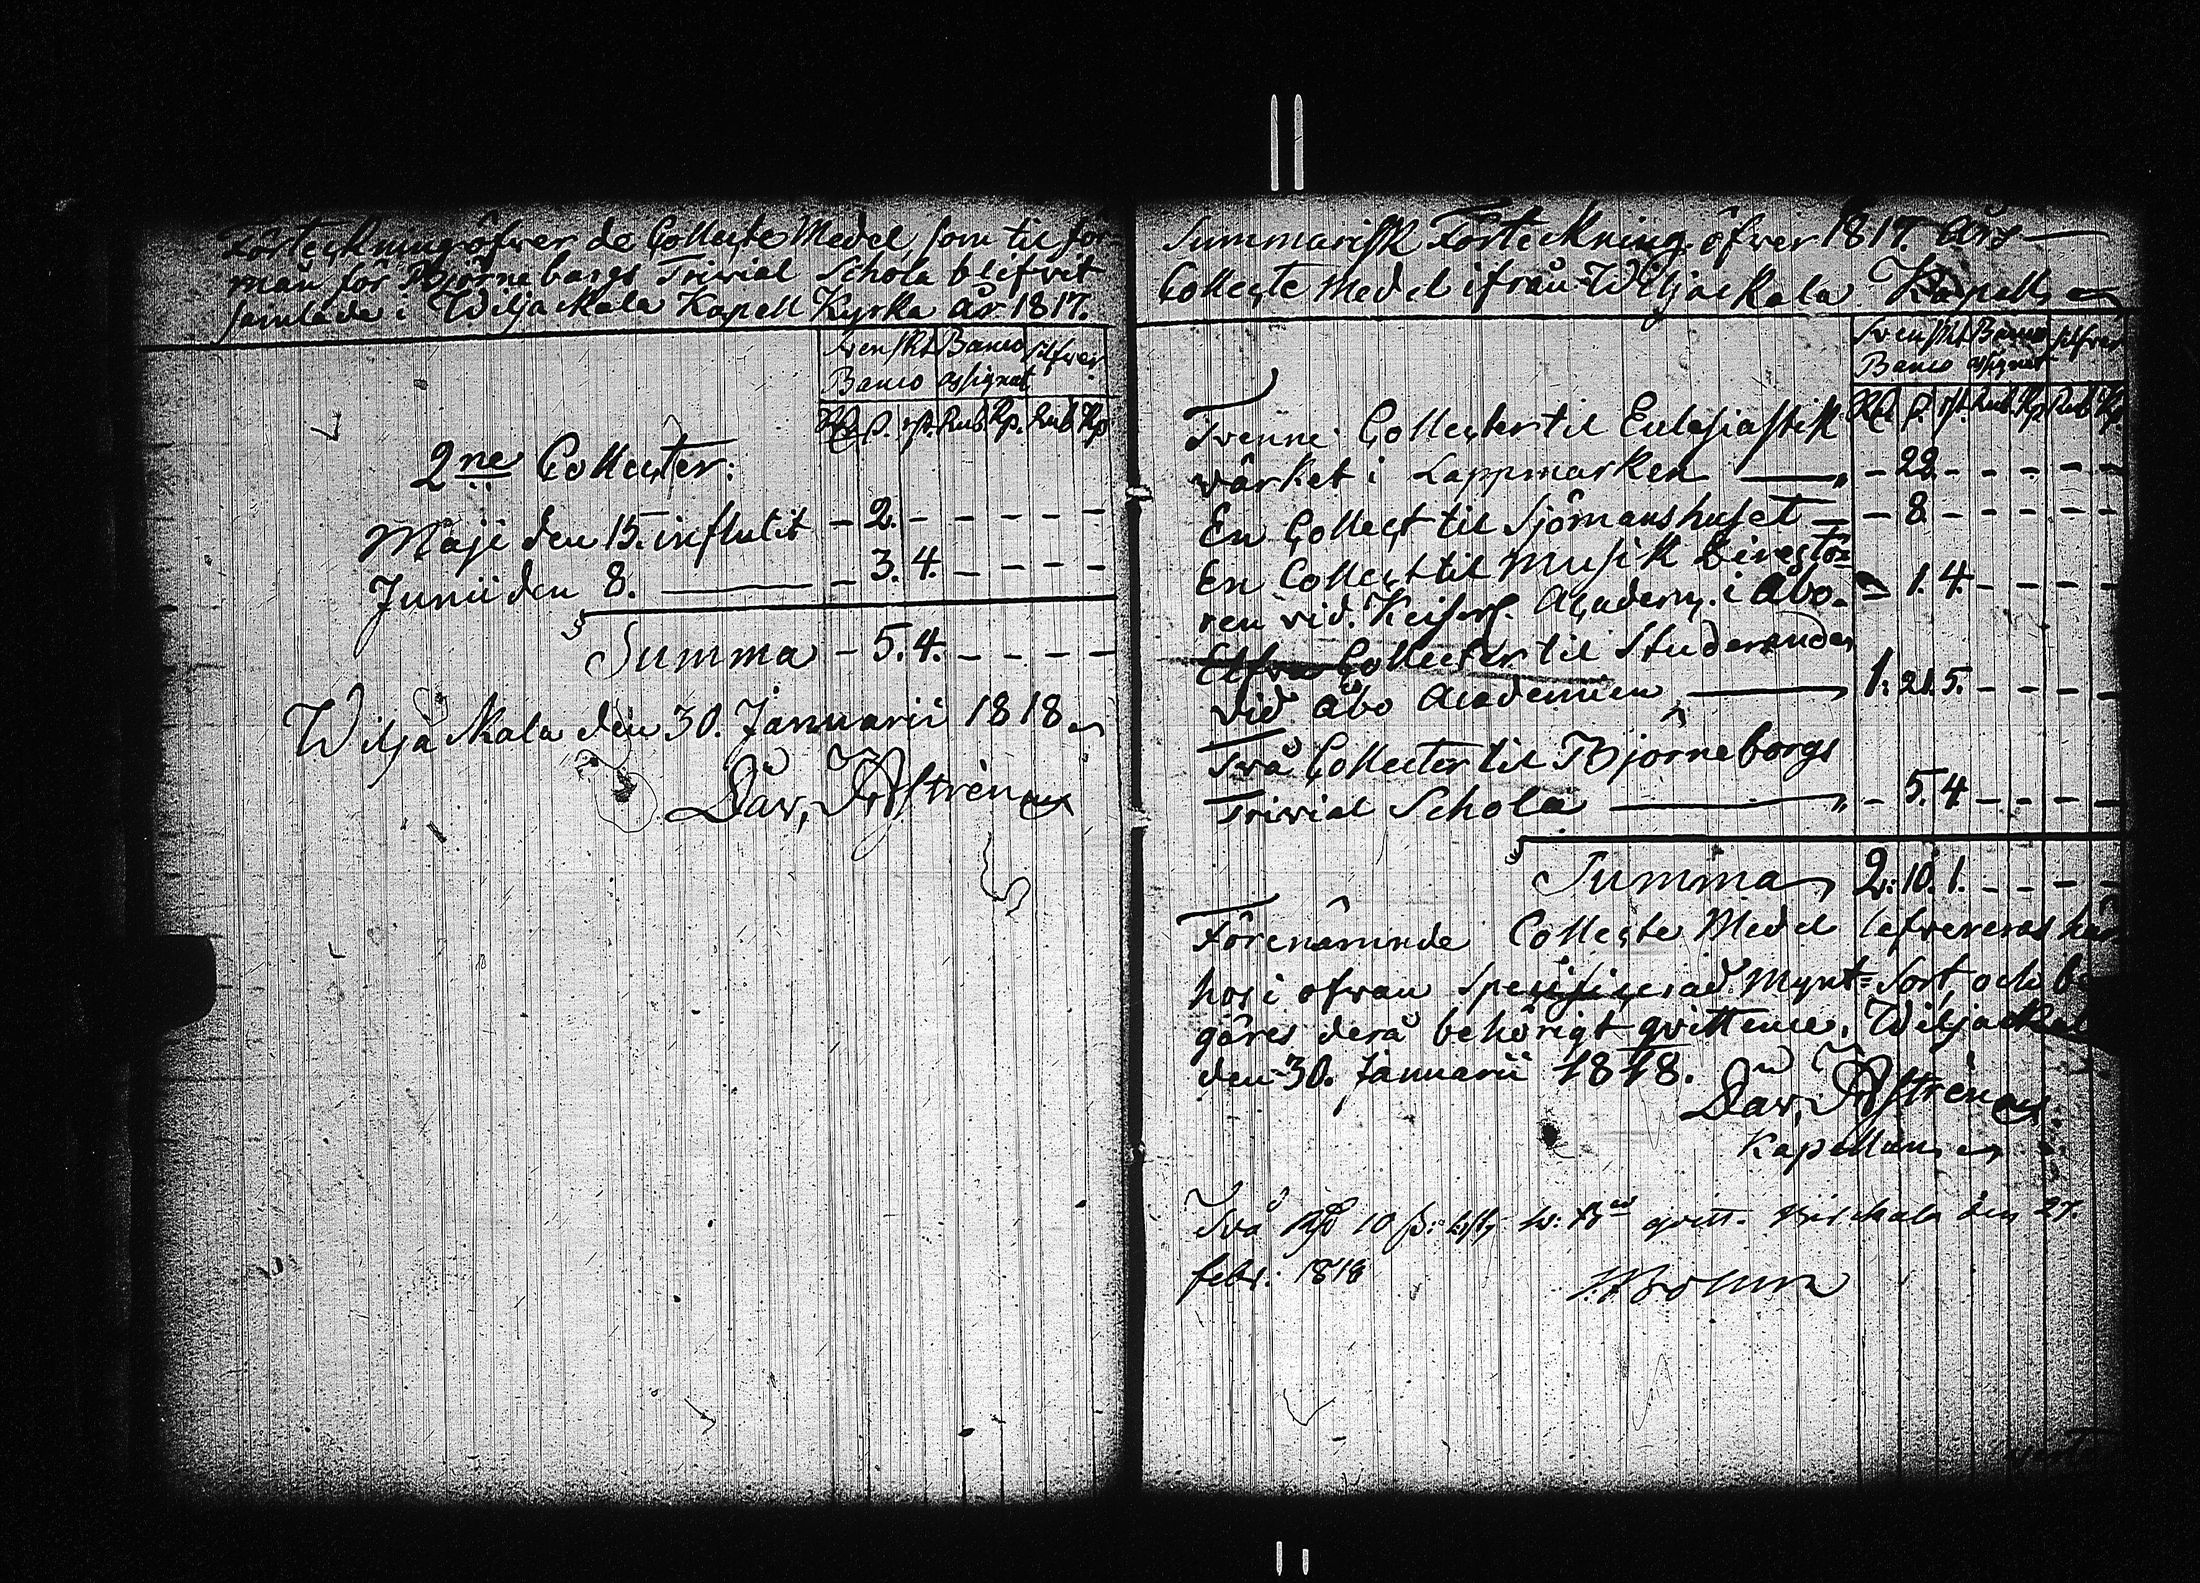 Förteckning öfwer de Collecte Medel, som til för-
mån för Björneborgs Trivial Schola blifvit
samlade i Wiljackala Kapell Kyrka år 1817.
Svenskt Banco silfver
Banco assignat
Rd. ß. rst. Rub. Kp. Rub. Kp
2ne Collecter:
Maji den 15. influtit – 2. – – – – –
Junii den 8. – 3. 4. – – – –
Summa – 5. 4. – – – –
Wiljackala den 30. Januarii 1818
Dav. Astrén
Summarisk Förteckning öfwer 1817. Års
Collecte Medel ifrån Wiljackala Kapell
Svenskt Banco silfver
Banco assignat
Rd ß. rst. Rub. Kp Rub Kp.
Tvenne Collecter til Ecclesiastik
värket i Lappmarken – 22. – – – – –
En Collect til Sjömanshuset – 8. – – – – –
En Collect til Musik Directö-
ren vid Keiserl. Academ. i Åbo. – 1. 4. – – – –
Elfva Collecter til Studerande
vid Åbo Academien 1: 21. 5. – – – –
Två Collecter til Björneborgs
Trivial Schola – 5. 4 – – – –
Summa 2: 10. 1. – – – –
Förenämnde Collecte Medel lefvereras här
hos i ofvan specificerad Mynt-Sort, och be
gäres derå behörigt qvittence. Wiljackala
den 30. Januarii 1818.
Dav. Astrén
Kapellan
Två Rd 10 ß: 1 rst. qvitt. den 27.
febr: 1818